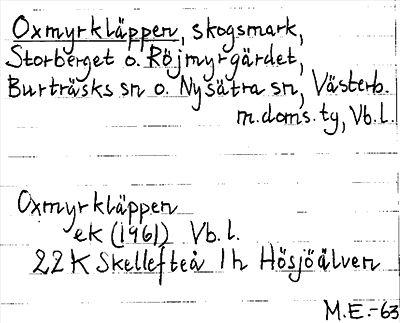 Oxmyrkläppen, skogsmark,
Storberget o. Röjmyrgärdet,
Burträsks sn o. Nysätra sn, Västerb.
m.doms.ty, Vb.l.
Oxmyrkläppen
ek (1961) Vb.l.
22K Skellefteå 1h Hösjöälven
M.E.-63